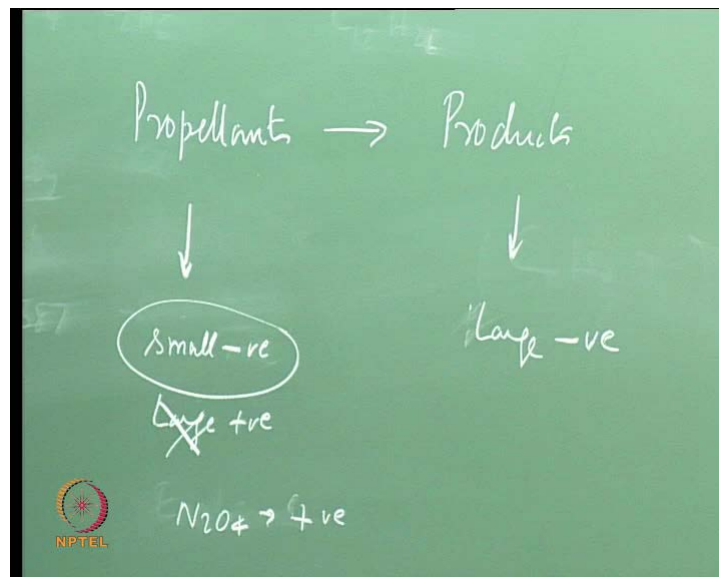 Propellants → Products
small -ve
Large -ve
Large +ve
N2O4 → +ve
NPTEL